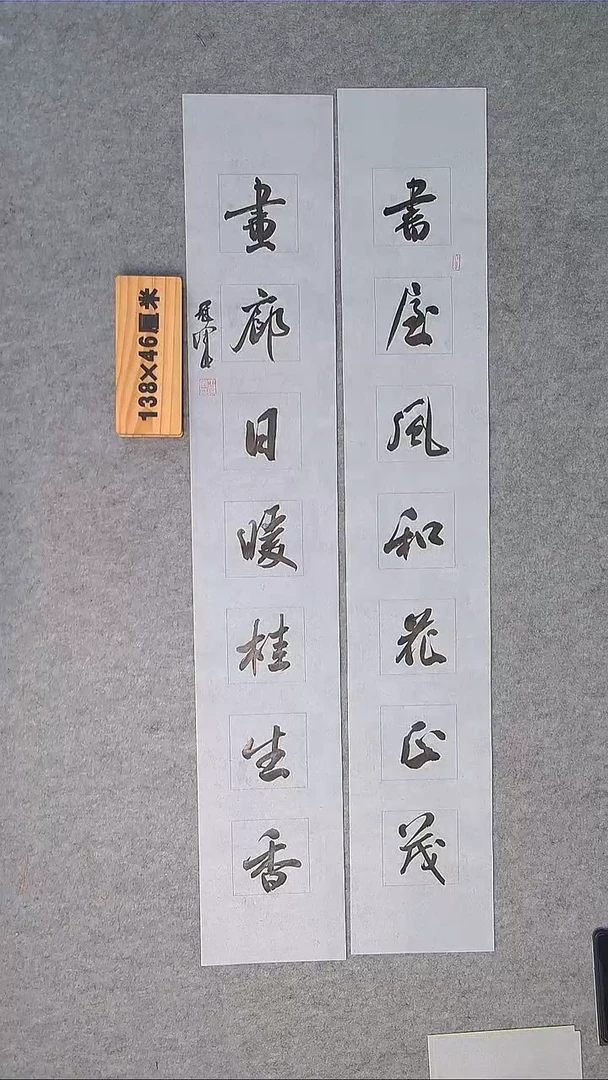 書屋風和花正茂
畫廊日暖桂生香
138×46厘米